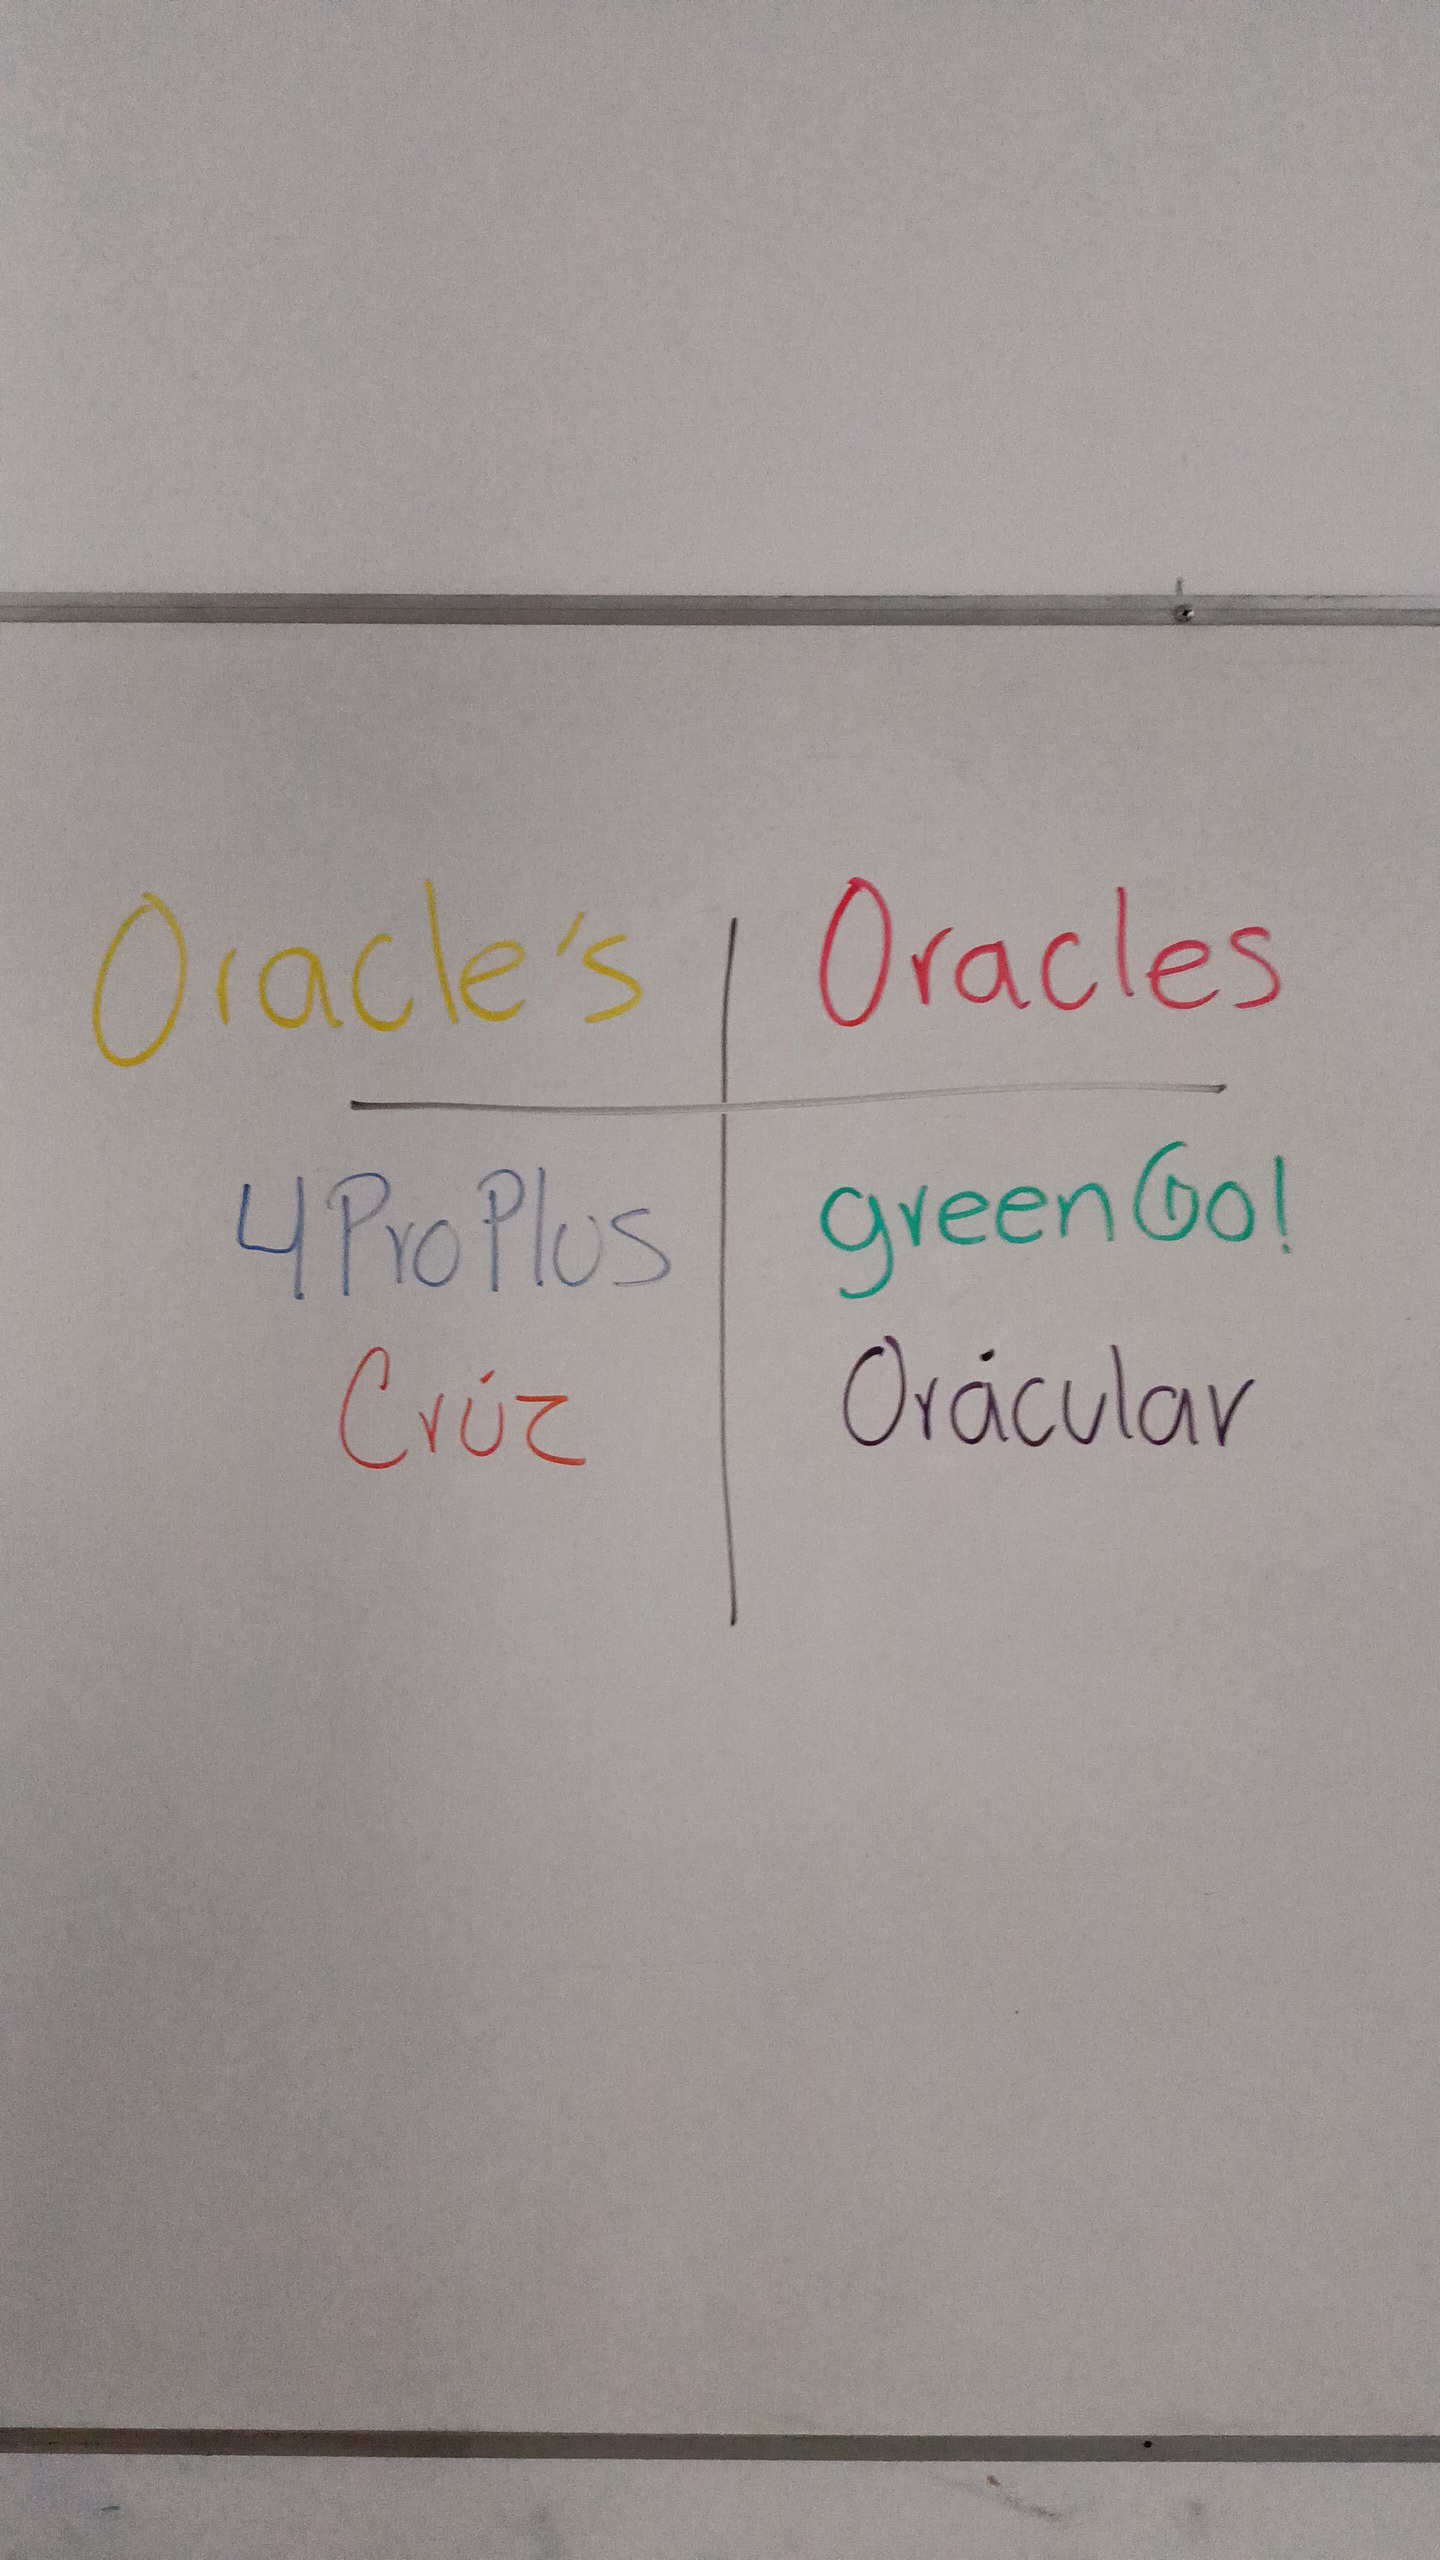 Oracle's Oracles
4ProPlus greenGo!
Crúz Orácular